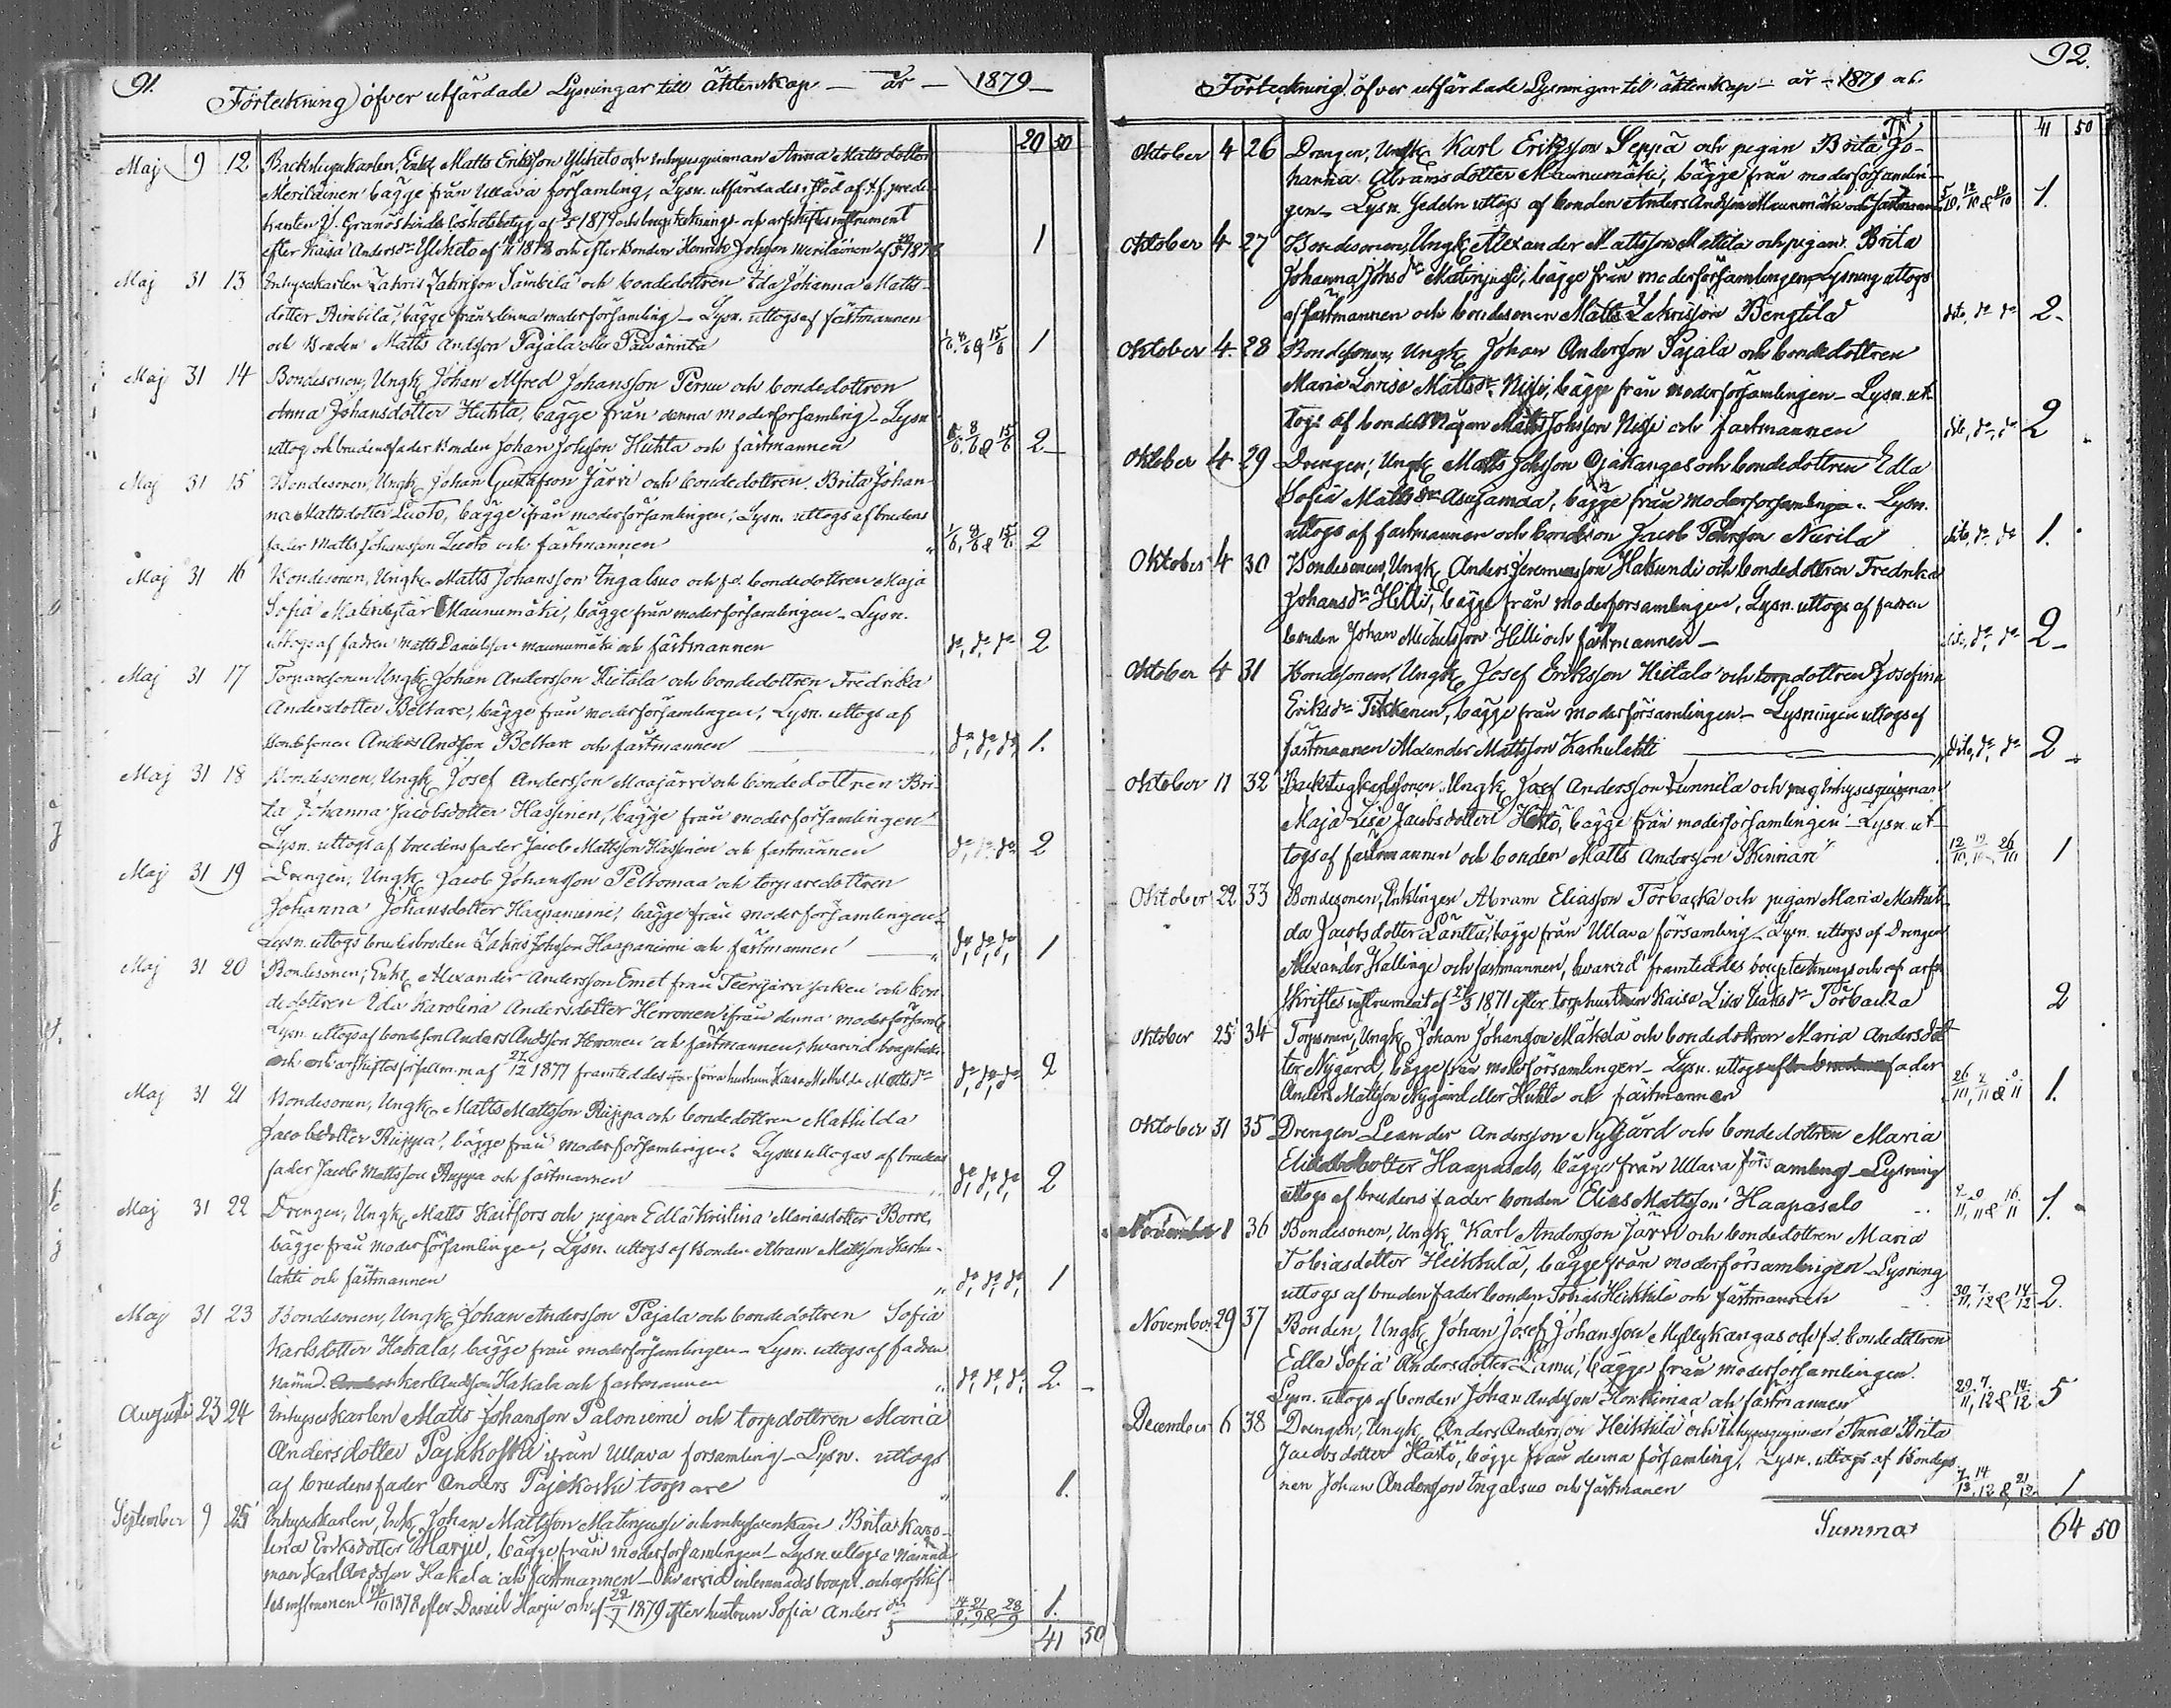 91.
Förteckning öfver utfärdade Lysningar till äktenskap — år — 1879 —
20 50
Maj 9 12 Backstugukarlen, Enkl. Matts Eriksson Yliketo och Inhysesquinnan Anna Mattsdotter
Meriläinen bägge från Ullava församling, Lysn. utfärdades i stöd af t.f. predi-
kanten P. Granös hinderlöshetsbetyg af 1879 och bouptecknings- och arfskiftesinstrument
efter Kaisa Andersdr Yliketo af 1878 och efter bonden Henrik Johsson Meriläinen af 187 1
Maj 31 13 Inhyseskarlen Zakris Zakrisson Sämbilä och bondedottren Ida Johanna Matts-
dotter Rimbilä, bägge från denna moderförsamling — Lysn. uttogs af fästmannen
och bonden Matts Andsson Pajala eller Päivärinta 1/6, 8/6 & 15/6 1
Maj 31 14 Bondesonen, Ungk. Johan Alfred Johansson Pernu och bondedottren
Anna Johansdotter Huhta, bägge från denna moderförsamling — Lysn.
uttog och brudens fader bonden Johan Johsson Huhta och fästmannen 1/6, 8/6 & 15/6 2 —
Maj 31 15 Bondesonen, Ungk. Johan Gustafsson Järvi och bondedottren Brita Johan-
na Mattsdotter Luoto, bägge från moderförsamlingen; Lysn. uttogs af brudens
fader Matts Johansson Luoto och fästmannen „ 1/6, 8/6 & 15/6 2
Maj 31 16 Bondesonen, Ungk. Matts Johansson Ingalsuo och f.d. bondedottren Maja
Sofia Matintytär Maunumäki, bägge från moderförsamlingen — Lysn.
uttogs af fadren Matts Danielsson Maunumäki och fästmannen do, do, do 2
Maj 31 17 Torparesonen Ungk. Johan Andersson Hietala och bondedottren Fredrika
Andersdotter Beltare, bägge från moderförsamlingen, Lysn. uttogs af
bondesonen Anders Andsson Beltare och fästmannen — „ do, do, do 1.
Maj 31 18 Bondesonen, Ungk. Josef Andersson Maajärvi och bondedottren Bri-
ta Johanna Jacobsdotter Hassinen, bägge från moderförsamlingen —
Lysn. uttogs af brudens fader Jacob Mattsson Hassinen och fästmannen do, do, do 2
Maj 31 19 Drengen, Ungk. Jacob Johansson Peltomaa och torparedottren
Johanna Johansdotter Haapaniemi, bägge från moderförsamlingen —
Lysn. uttogs brudens broder Zakris Johsson Haapaniemi och fästmannen — „ do, do, do 1
Maj 31 20 Bondesonen, Enkl. Alexander Andersson Emet från Teerijärvi socken och bon-
dedottren Ida Karolina Andersdotter Herronen från denna moderförsaml.
Lysn. uttogs af bondeson Anders Andsson Herronen och fästmannen, hvarvid bouptekn.
och arfskiftes af 27/12 1877 framteddes för förra hustrun Kaisa Mathilda Mattsdr do, do, do 2
Maj 31 21 Bondesonen, Ungk. Matts Mattsson Riippa och bondedottren Mathilda
Jacobsdotter Riippa, bägge från moderförsamlingen. Lysn. uttogas af brudens
fader Jacob Mattsson Riippa och fästmannen — „ do, do, do 2
Maj 31 22 Drengen, Ungk. Matts Kaitfors och pigan Edla Kristina Mariasdotter Borre,
bägge från moderförsamlingen, Lysn. uttogs af bonden Abram Mattsson Karhu-
lahti och fästmannen „ do, do, do 1
Maj 31 23 Bondesonen, Ungk. Johan Andersson Pajala och bondedottren Sofia
Karlsdotter Hakala, bägge från moderförsamlingen — Lysn. uttogs af fadren
nämnd. Karl Andsson Hakala och fästmannen „ do, do, do 2. —
Augusti 23 24 Inhyseskarlen Matts Johansson Paloniemi och torpdottren Maria
Andersdotter Pajukoski från Ullava församling — Lysn. uttogs
af brudens fader Anders Pajukoski torpare „ 1.
September 9 25 Inhyseskarlen, Enk. Johan Mattsson Matinjussi och inhysesenkan Brita Karo-
lina Eriksdotter Harju, bägge från moderförsamlingen — Lysn. uttogs a Nämnde-
man Karl Andsson Hakala och fästmannen — hvarvid inlemnades boupt. och arfskif-
tesinstrumen /10 1878 efter Daniel Harju och af 29/7 1879 efter hustrun Sofia Andersdr 14/9, 21/9 & 28/9 1.
41 50
92.
Förteckning öfver utfärdade Lysningar till äktenskap — år — 1879 ab.
Trt 41 50
Oktober 4 26 Drengen, Ungk. Karl Eriksson Seppä och pigan Brita Jo-
hanna Abramsdotter Maunumäki, bägge från moderförsamlin-
gen — Lysn. Sedeln uttogs af bonden Anders Andsson Maunumäki och fästmannen 5/10, 12/10 & 19/10 1.
Oktober 4 27 Bondesonen, Ungk. Alexander Mattsson Mattila och pigan Brita
Johanna Johsdr Matinjussi, bägge från moderförsamlingen — Lysning uttogs
af fästmannen och bondesonen Matts Zakrisson Bengtila dito, do do 2.
Oktober 4 28 Bondesonen, Ungk. Johan Andersson Pajala och bondedottren
Maria Lovisa Mattsdr Nisi, bägge från moderförsamlingen — Lysn. ut-
togs af bonde Mågen Matts Johsson Nisi och fästmannen dito, do, do 2 .
Oktober 4 29 Drengen, Ungk. Matts Johsson Ojakangas och bondedottren Edla
Sofia Mattsdr Asujamaa, bägge från moderförsamlingen. Lysn.
uttogs af fästmannen och bondeson Jacob Pehrsson Nurila dito, do do 1. .
Oktober 4 30 Bondesonen, Ungk. Anders Jeremiasson Hakundi och bondedottren Fredrika
Johansdr Hilli, bägge från moderförsamlingen, Lysn. uttogs af fadren
bonden Johan Michelsson Hilli och fästmannen — dito, do do 2 —
Oktober 4 31 Bondesonen, Ungk. Josef Eriksson Hietala och torpdottren Josefina
Eriksdr Tikkanen, bägge från moderförsamlingen — Lysningen uttogs af
fästmannen Alexander Mattsson Karhulahti — „ dito, do do 2 —
Oktober 11 32 Backstugkarlsonen, Ungk. Josef Andersson Tunnela och Inhysesquinnan
Maja Lisa Jacobsdotter Hästö, bägge från moderförsamlingen — Lysn. ut-
togs af fästmannen och bonden Matts Andersson Skinnari 12/10, 19/10, 26/10 1
Oktober 22 33 Bondesonen, Enklingen Abram Eliasson Törbacka och pigan Maria Mathil-
da Jacobsdotter Länttä, bägge från Ullava församling — Lysn. uttogs af Drengen
Alexander Kallinge och fästmannen, hvarvid framteddes bouptecknings och arf-
skriftesinstrument af 1871 efter torphustrun Kaisa Lisa Isaksdr Törbacka 2
Oktober 25 34 Torpsonen, Ungk. Johan Johansson Mäkelä och bondedottren Maria Andersdot-
ter Nygård, bägge från moderförsamlingen — Lysn. uttogs fader
Anders Mattsson Nygård eller Huhta och fästmannen 26/10, 2/11 & 9/11 1.
Oktober 31 35 Drengen Leander Andersson Nygård och bondedottren Maria
Eliasdotter Haapasalo, bägge från Ullava församling — Lysning
uttogs af brudens fader bonden Elias Mattsson Haapasalo 2/11, 9/11 & 16/11 1.
November 8 36 Bondesonen, Ungk. Karl Andersson Järvi och bondedottren Maria
Tobiasdotter Heikkilä, bägge från moderförsamlingen — Lysning
uttogs af bruden fader bonden Tobias Heikkilä och fästmannen 30/11, 7/12 & 14/12 2.
November 29 37 Bonden, Ungk. Johan Josef Johansson Myllykangas och f.d. bondedottren
Edla Sofia Andersdotter Lamu, bägge från moderförsamlingen.
Lysn. uttogs af bonden Johan Andsson Honkimaa och fästmannen 29/11, 7/12 & 14/12 5
December 6 38 Drengen, Ungk. Anders Andersson Heikkilä och Inhysesquinnan Anna Brita
Jacobsdotter Hästö, bägge från denna församling. Lysn. uttogs af Bondeso-
nen Johan Andersson Ingalsuo och fästmannen 7/12, 14/12 & 21/12 1
Summa 64 50